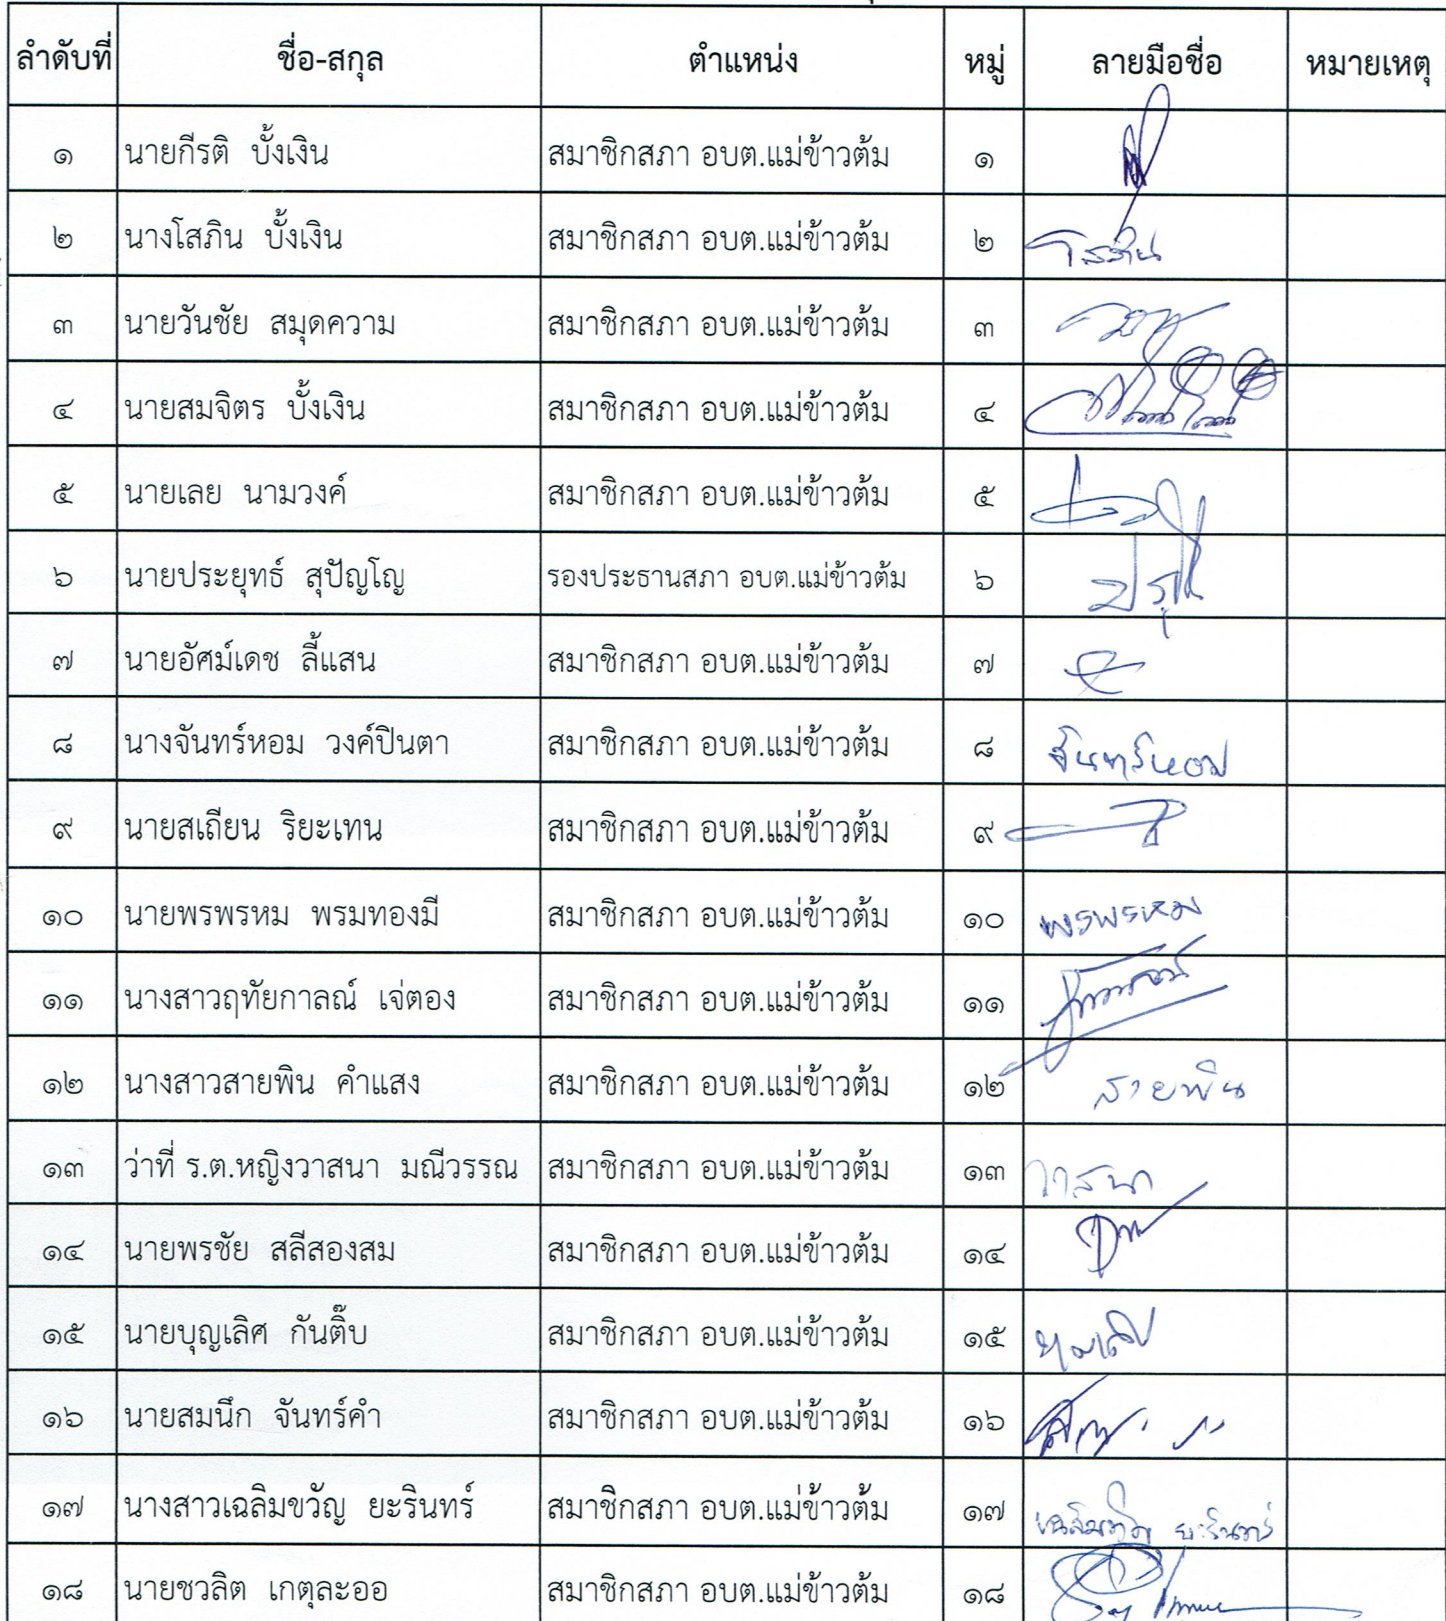 ลำดับที่ ชื่อ-สกุล ตำแหน่ง หมู่ ลายมือชื่อ หมายเหตุ
๑ นายกีรติ บั้งเงิน สมาชิกสภา อบต.แม่ข้าวต้ม ๑
๒ นางโสภิน บั้งเงิน สมาชิกสภา อบต.แม่ข้าวต้ม ๒ โสภิน
๓ นายวันชัย สมุดความ สมาชิกสภา อบต.แม่ข้าวต้ม ๓
๔ นายสมจิตร บั้งเงิน สมาชิกสภา อบต.แม่ข้าวต้ม ๔
๕ นายเลย นามวงค์ สมาชิกสภา อบต.แม่ข้าวต้ม ๕
๖ นายประยุทธ์ สุปัญโญ รองประธานสภา อบต.แม่ข้าวต้ม ๖
๗ นายอัศม์เดช ลี้แสน สมาชิกสภา อบต.แม่ข้าวต้ม ๗
๘ นางจันทร์หอม วงค์ปินตา สมาชิกสภา อบต.แม่ข้าวต้ม ๘ จันทร์หอม
๙ นายสเถียน ริยะเทน สมาชิกสภา อบต.แม่ข้าวต้ม ๙
๑๐ นายพรพรหม พรมทองมี สมาชิกสภา อบต.แม่ข้าวต้ม ๑๐ พรพรหม
๑๑ นางสาวฤทัยกาลณ์ เจ่ตอง สมาชิกสภา อบต.แม่ข้าวต้ม ๑๑
๑๒ นางสาวสายพิน คำแสง สมาชิกสภา อบต.แม่ข้าวต้ม ๑๒ สายพิน
๑๓ ว่าที่ ร.ต.หญิงวาสนา มณีวรรณ สมาชิกสภา อบต.แม่ข้าวต้ม ๑๓ วาสนา
๑๔ นายพรชัย สลีสองสม สมาชิกสภา อบต.แม่ข้าวต้ม ๑๔
๑๕ นายบุญเลิศ กันติ๊บ สมาชิกสภา อบต.แม่ข้าวต้ม ๑๕
๑๖ นายสมนึก จันทร์คำ สมาชิกสภา อบต.แม่ข้าวต้ม ๑๖
๑๗ นางสาวเฉลิมขวัญ ยะรินทร์ สมาชิกสภา อบต.แม่ข้าวต้ม ๑๗ เฉลิมขวัญ ยะรินทร์
๑๘ นายชวลิต เกตุละออ สมาชิกสภา อบต.แม่ข้าวต้ม ๑๘